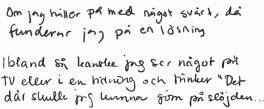 Om jag håller på med något svårt, då
funderar jag på en lösning
Ibland så kanske jag ser något på
TV eller i en tidning och tänker "Det
där skulle jag kunna göm på slöjden...